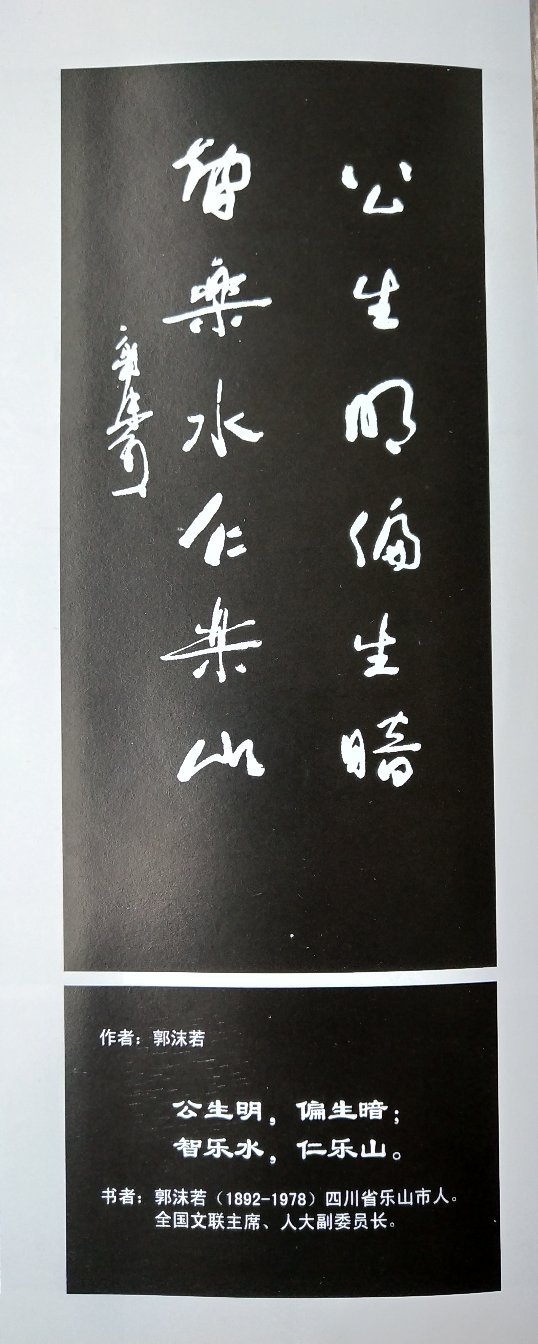 公生明偏生暗
智樂水仁樂山
郭沫若
作者：郭沫若
公生明，偏生暗；
智乐水，仁乐山。
书者：郭沫若（1892-1978）四川省乐山市人。
全国文联主席、人大副委员长。